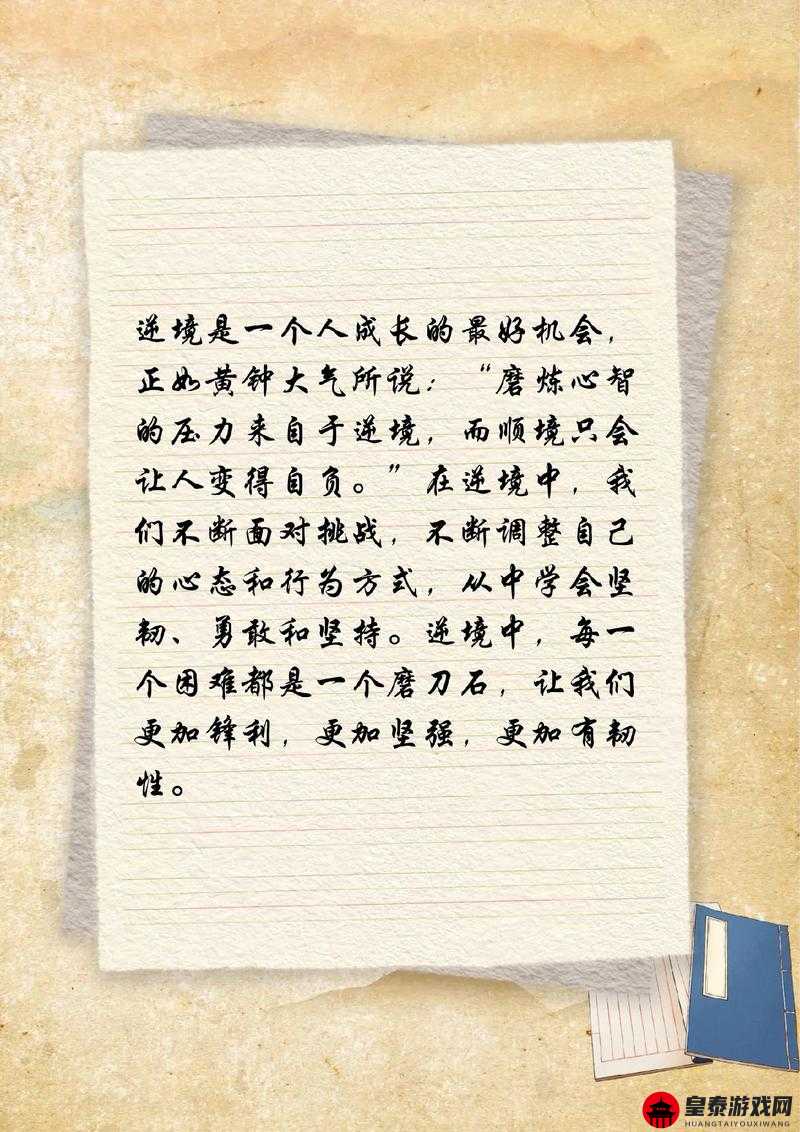 逆境是一个人成长的最好机会，
正如黄钟大气所说：“磨炼心智
的压力来自于逆境，而顺境只会
让人变得自负。”在逆境中，我
们不断面对挑战，不断调整自己
的心态和行为方式，从中学会坚
韧、勇敢和坚持。逆境中，每一
个困难都是一个磨刀石，让我们
更加锋利，更加坚强，更加有韧
性。
皇泰游戏网
HUANGTAIYOUXIWANG